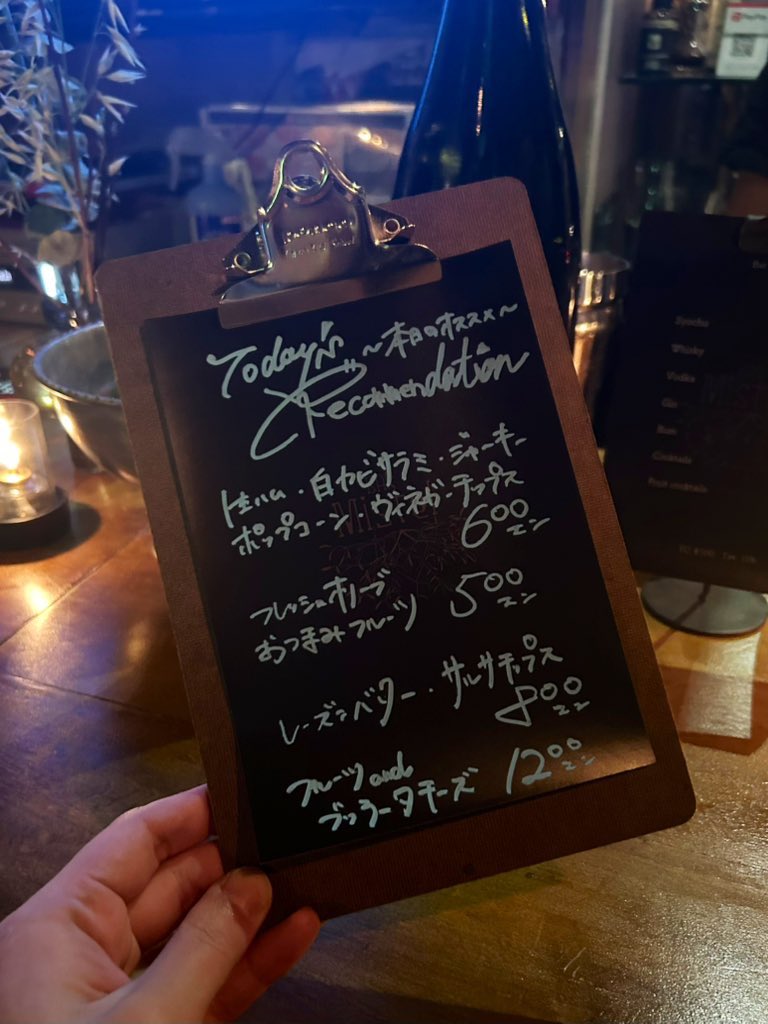 Today's ～本日のオススメ～
Recommendation
生ハム・白カビサラミ・ジャーキー
ポップコーン ヴィネガーチップス
600エン
フレッシュオリーブ
おつまみフルーツ 500エン
レーズンバター・サルサチップス
800エン
フルーツ and
ブッラータチーズ 1200エン
Whisky
Vodka
Gin
Rum
Cocktails
Fruit cocktails